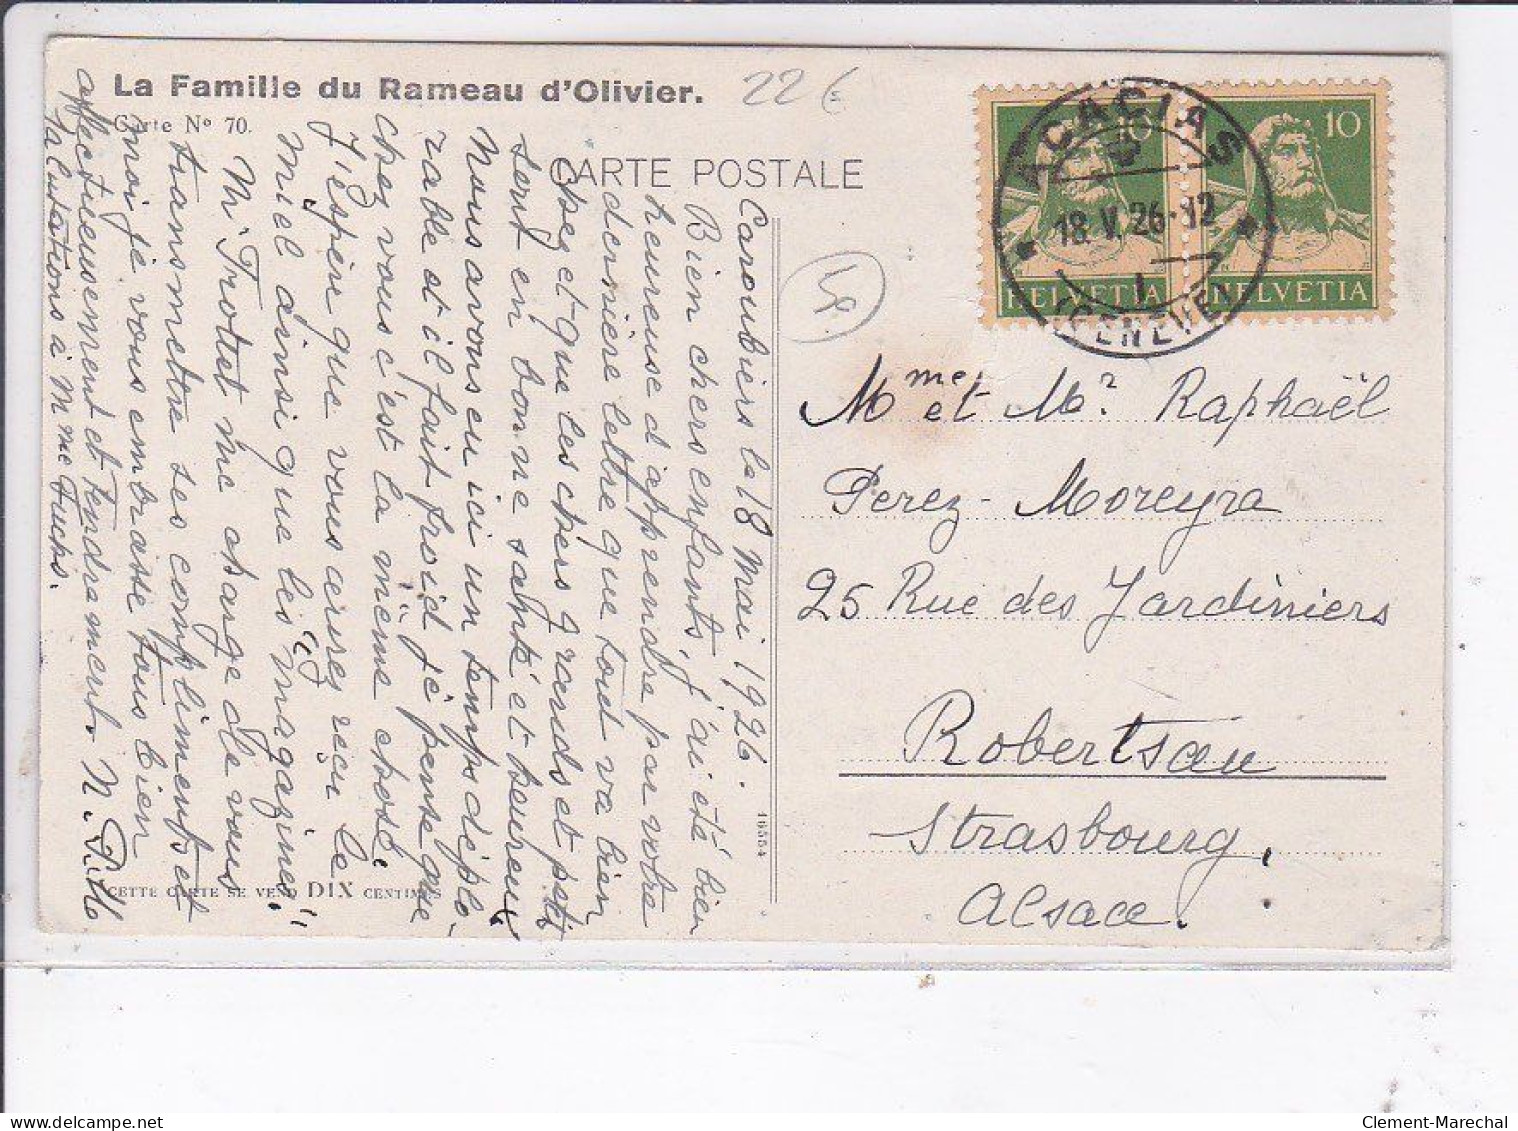 La Famille du Rameau d'Olivier.
Carte Nº 70.
22 €
CARTE POSTALE
10
10
HELVETIA
HELVETIA
ACACIAS
18. V. 26-12
1
(GENÈVE)
Caroubiers le 18 mai 1926.
Bien chers enfants, j'ai été bien
heureuse d'apprendre par votre
dernière lettre que tout va bien
chez et que les chers grands et petit
sont en bonne santé et heureux
Nous avons eu ici un temps déplo-
rable et il fait froid je pense que
chez vous c'est la même chose.
J'espère que vous aurez reçu le
miel ainsi que les "magazines"
Mr Trottet me charge de vous
transmettre ses compliments et
moi je vous embrasse tous bien
affectueusement et tendrement. N. P. M
Salutations à Mme Fuchs.
CETTE CARTE SE VEND DIX CENTIMES
16554
Mme et Mr Raphaël
Perez-Moreyra
25 Rue des Jardiniers
Robertsau
Strasbourg,
Alsace.
Clement-Marechal
delcampe.net